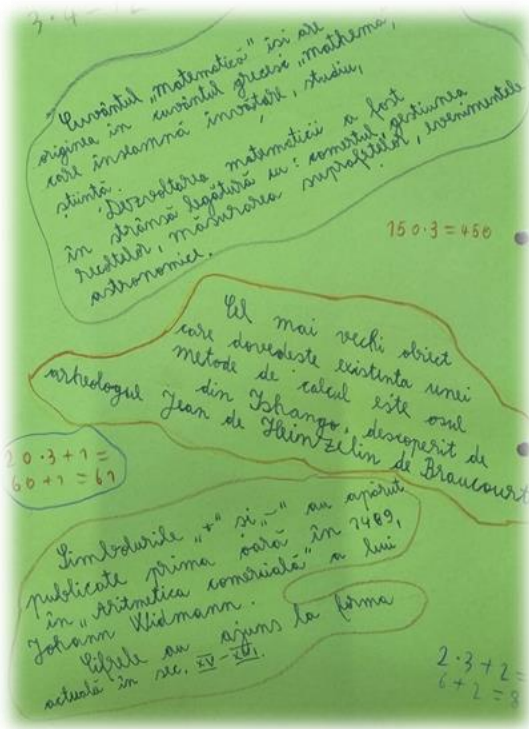 3 · 4 = 12
Cuvântul „matematică” își are
originea în cuvântul grecesc „mathema”,
care înseamnă învățare, studiu,
știință.
Dezvoltarea matematicii a fost
în strânsă legătură cu: comerțul, gestiunea
recoltelor, măsurarea suprafețelor, evenimentele
astronomice.
150·3=450
Cel mai vechi obiect
care dovedește existența unei
metode de calcul este osul
din Ishango, descoperit de
arheologul Jean de Heinzelin de Braucourt
20·3+1=
60+1=61
Simbolurile „+” și „-” au apărut
publicate prima oară în 1489,
în „Aritmetica comercială” a lui
Johann Widmann.
Cifrele au ajuns la forma
actuală în sec. XV-XVI.
2·3+2=
6+2=8